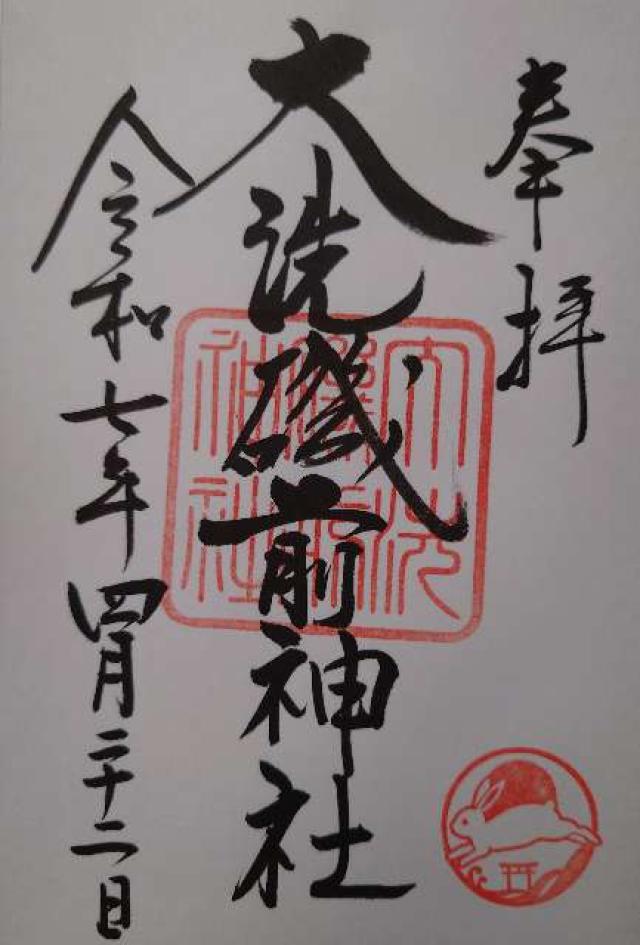 奉拝
大洗磯前神社
令和七年四月二十二日
大洗
磯前
神社